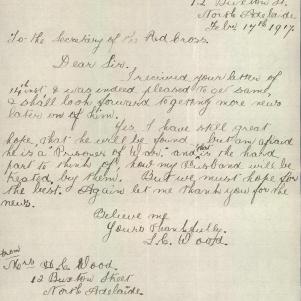 12 Buxton St.
North Adelaide
Feby 17th 1917.
To the Secretary of the Red Cross.
Dear Sir.
I received your letter of
14 inst & was indeed pleased to get same,
& shall look forward to getting more news
later on of him.
Yes, I have still great
hope that he will be found but am afraid
he is a "Prisoner of War." and that is the hard
part to think of how my Husband will be
treated by them. But we must hope for
the best. Again let me thank you for the
news.
Believe me
Yours Thankfully.
L. C. Wood.
from
Mrs H. C. Wood.
12 Buxton Street
North Adelaide.